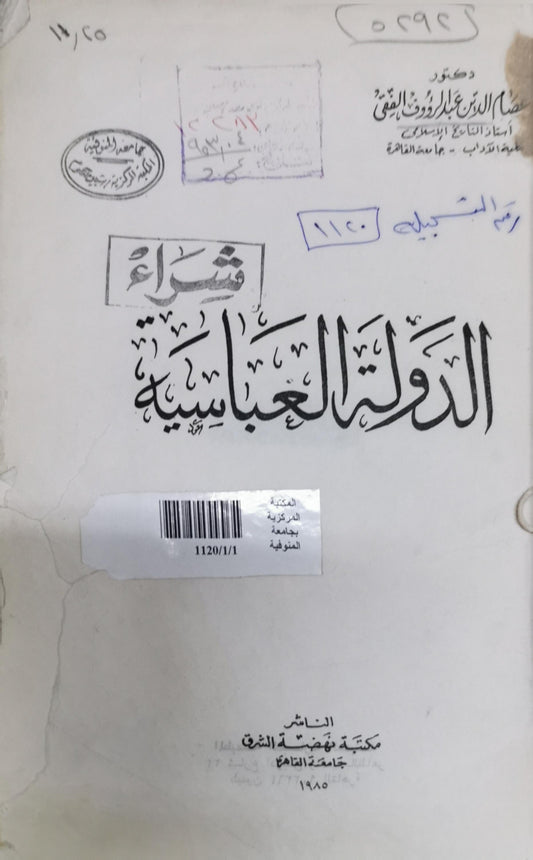 ٥٢٩٢
١١,٢٥
دكتور
عصام الدين عبد الرؤوف الفقى
أستاذ التاريخ الإسلامى
كلية الآداب - جامعة القاهرة
جامعة المنوفية
المكتبة المركزية بشبين الكوم
رقم التسجيل ١١٢٠
شراء
الدولة العباسية
المكتبة
المركزية
بجامعة
المنوفية
1120/1/1
الناشر
مكتبة نهضة الشرق
جامعة القاهرة
١٩٨٥